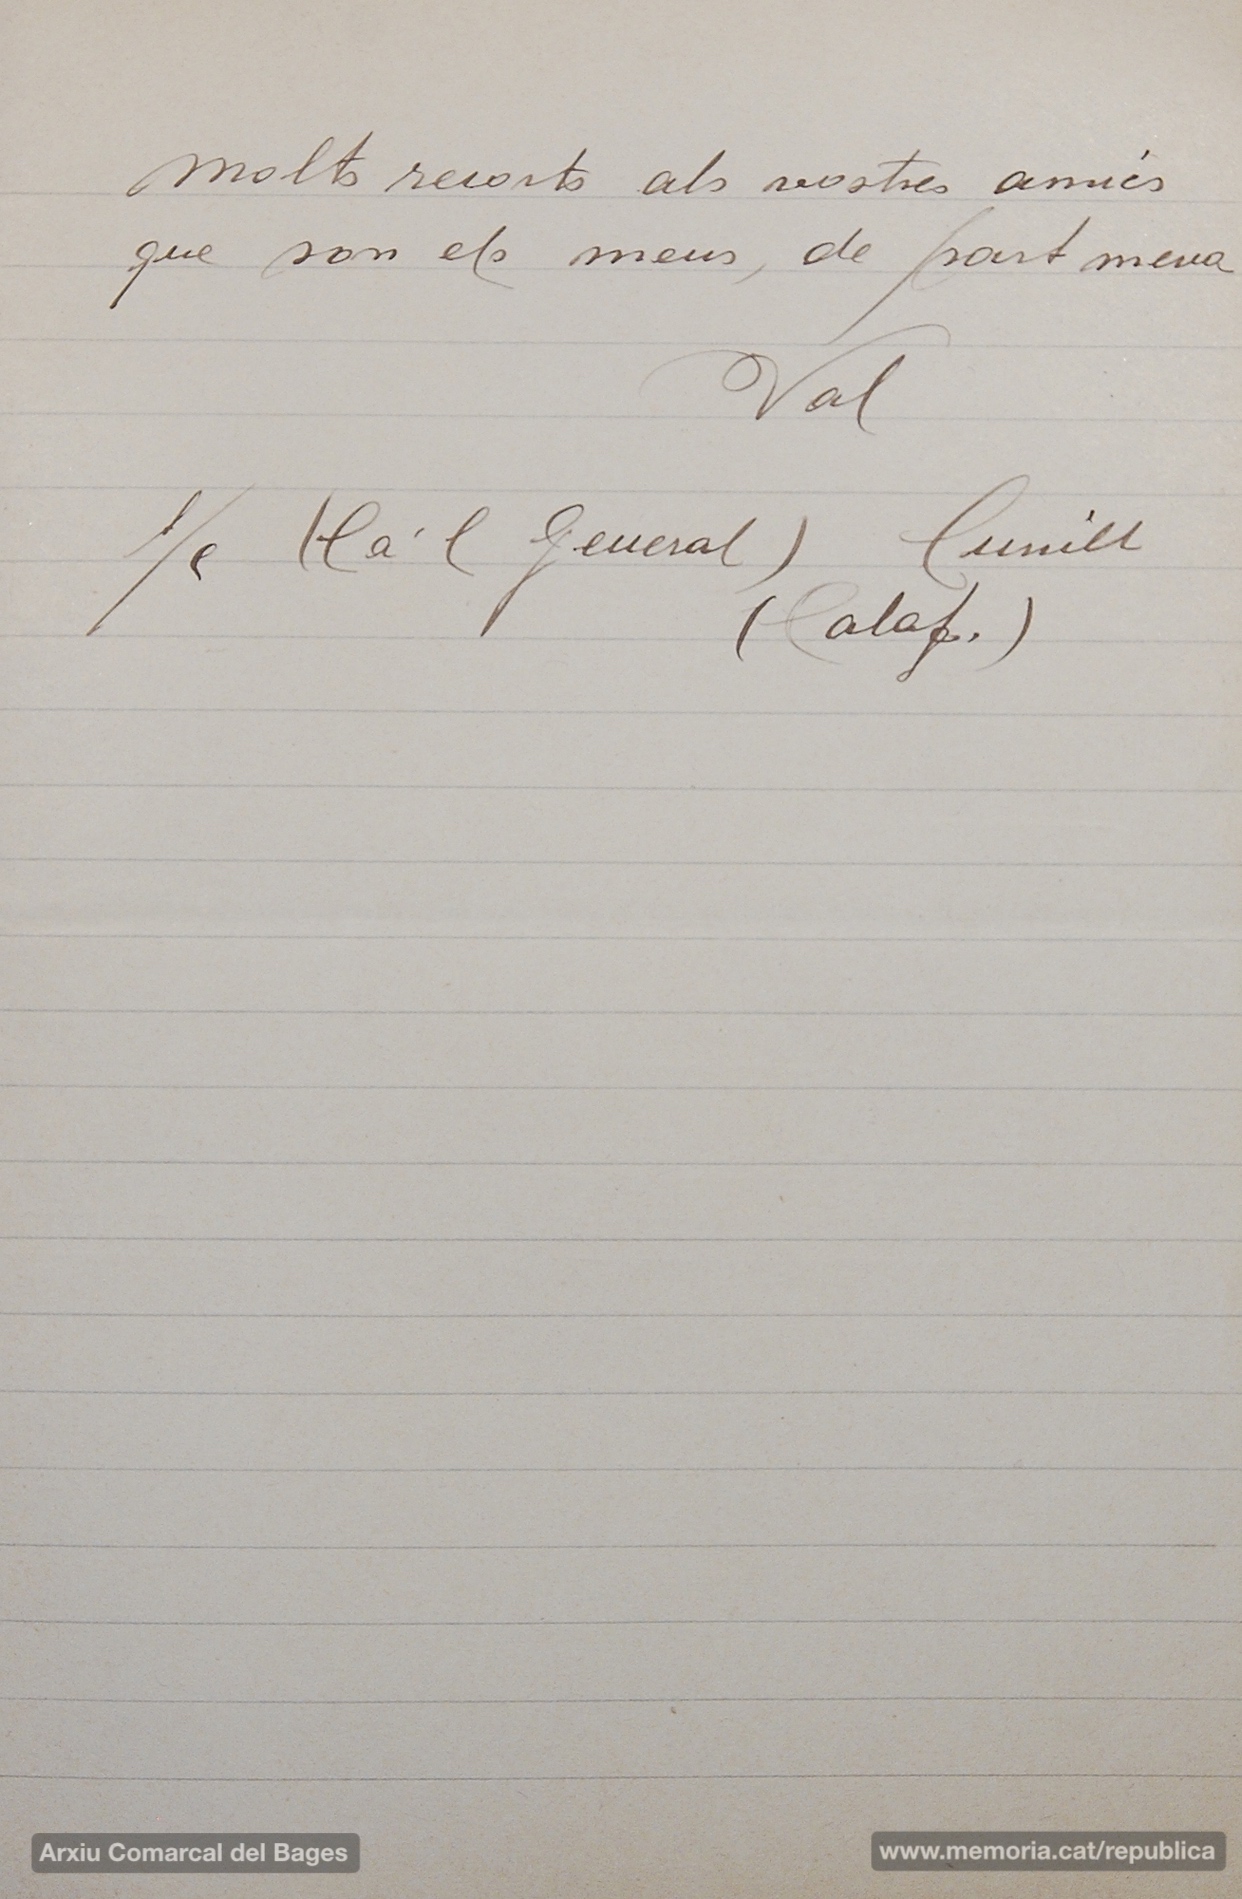 Molts recorts als vostres amics
que son els meus, de part meva
Val
s/c (Ca'l General) Cunill
(Calaf.)
Arxiu Comarcal del Bages
www.memoria.cat/republica